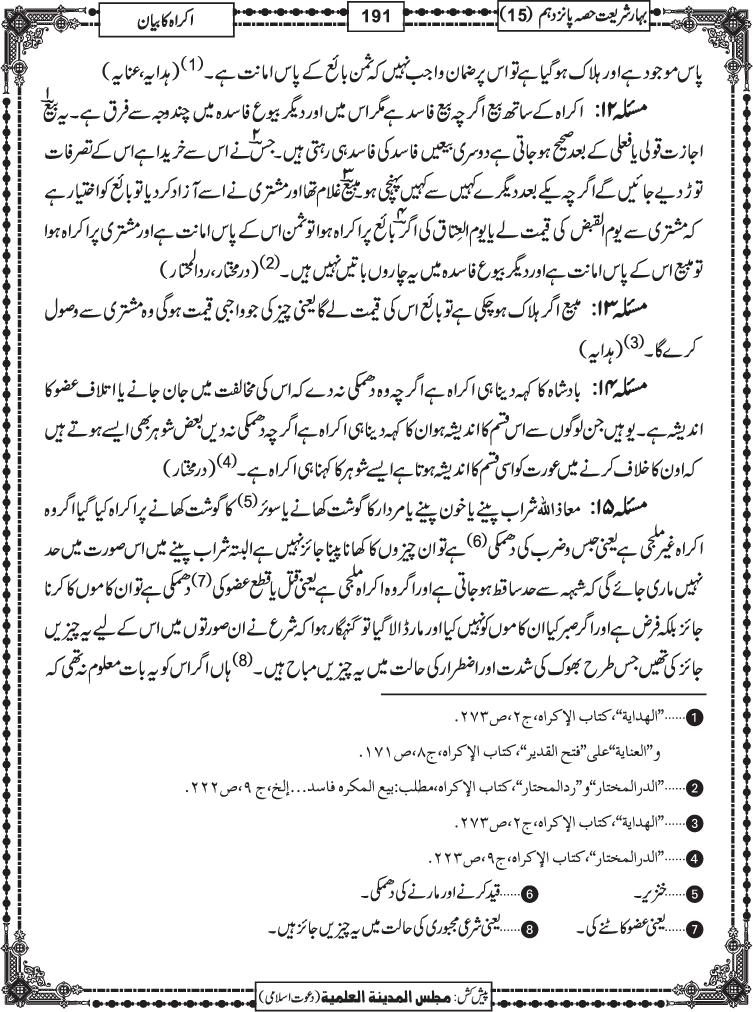 بہار شریعت حصہ پانزدہم (15)
191
اکراہ کا بیان
پاس موجود ہے اور ہلاک ہوگیا ہے تو اس پر ضمان واجب نہیں کہ ثمن بائع کے پاس امانت ہے۔ (1) (ہدایہ، عنایہ)
مسئلہ ۱۲: اکراہ کے ساتھ بیع اگرچہ بیع فاسد ہے مگر اس میں اور دیگر بیوع فاسدہ میں چند وجہ سے فرق ہے۔ یہ ۱ بیع
اجازت قولی یا فعلی کے بعد صحیح ہو جاتی ہے دوسری بیعیں فاسد کی فاسد ہی رہتی ہیں۔ ۲ جس نے اس سے خریدا ہے اس کے تصرفات
توڑ دیے جائیں گے اگرچہ یکے بعد دیگرے کہیں سے کہیں پہنچی ہو۔ ۳ مبیع غلام تھا اور مشتری نے اسے آزاد کر دیا تو بائع کو اختیار ہے
کہ مشتری سے یوم القبض کی قیمت لے یا یوم العتاق کی اگر ۴ بائع پر اکراہ ہوا تو ثمن اس کے پاس امانت ہے اور مشتری پر اکراہ ہوا
تو مبیع اس کے پاس امانت ہے اور دیگر بیوع فاسدہ میں یہ چاروں باتیں نہیں ہیں۔ (2) (درمختار، ردالمحتار)
مسئلہ ۱۳: مبیع اگر ہلاک ہو چکی ہے تو بائع اس کی قیمت لے گا یعنی چیز کی جو واجبی قیمت ہوگی وہ مشتری سے وصول
کرے گا۔ (3) (ہدایہ)
مسئلہ ۱۴: بادشاہ کا کہہ دینا ہی اکراہ ہے اگرچہ وہ دھمکی نہ دے کہ اس کی مخالفت میں جان جانے یا اتلاف عضو کا
اندیشہ ہے۔ یوہیں جن لوگوں سے اس قسم کا اندیشہ ہو ان کا کہہ دینا ہی اکراہ ہے اگرچہ دھمکی نہ دیں بعض شوہر بھی ایسے ہوتے ہیں
کہ اون کا خلاف کرنے میں عورت کو اسی قسم کا اندیشہ ہوتا ہے ایسے شوہر کا کہنا ہی اکراہ ہے۔ (4) (درمختار)
مسئلہ ۱۵: معاذ اللہ شراب پینے یا خون پینے یا مردار کا گوشت کھانے یا سوئر (5) کا گوشت کھانے پر اکراہ کیا گیا اگر وہ
اکراہ غیر ملجی ہے یعنی حبس و ضرب کی دھمکی (6) ہے تو ان چیزوں کا کھانا پینا جائز نہیں ہے البتہ شراب پینے میں اس صورت میں حد
نہیں ماری جائے گی کہ شبہہ سے حد ساقط ہو جاتی ہے اور اگر وہ اکراہ ملجی ہے یعنی قتل یا قطع عضو کی (7) دھمکی ہے تو ان کاموں کا کرنا
جائز بلکہ فرض ہے اور اگر صبر کیا ان کاموں کو نہیں کیا اور مار ڈالا گیا تو گنہگار ہوا کہ شرع نے ان صورتوں میں اس کے لیے یہ چیزیں
جائز کی تھیں جس طرح بھوک کی شدت اور اضطرار کی حالت میں یہ چیزیں مباح ہیں۔ (8) ہاں اگر اس کو یہ بات معلوم نہ تھی کہ
1 ......”الهداية“، كتاب الإكراه، ج۲، ص۲۷۳.
و”العناية“ على ”فتح القدير“، كتاب الإكراه، ج۸، ص۱۷۱.
2 ......”الدرالمختار“ و ”ردالمحتار“، كتاب الإكراه، مطلب: بيع المكره فاسد...إلخ، ج ۹، ص۲۲۲.
3 ......”الهداية“، كتاب الإكراه، ج۲، ص۲۷۳.
4 ......”الدرالمختار“، كتاب الإكراه، ج۹، ص۲۲۳.
5 ......خنزیر۔ 6 ......قید کرنے اور مارنے کی دھمکی۔
7 ......یعنی عضو کاٹنے کی۔ 8 ......یعنی شرعی مجبوری کی حالت میں یہ چیزیں جائز ہیں۔
پیش کش: مجلس المدينة العلمية (دعوت اسلامی)